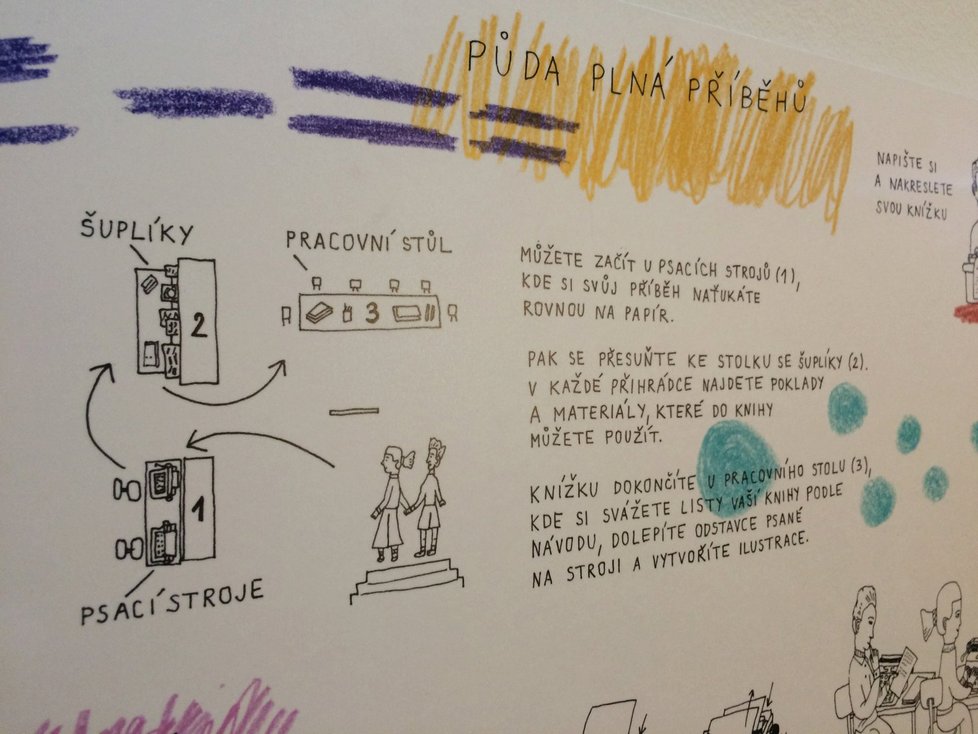 PŮDA PLNÁ PŘÍBĚHŮ
NAPIŠTE SI
A NAKRESLETE
SVOU KNÍŽKU
ŠUPLÍKY
PRACOVNÍ STŮL
2
3
1
PSACÍ STROJE
MŮŽETE ZAČÍT U PSACÍCH STROJŮ (1),
KDE SI SVŮJ PŘÍBĚH NAŤUKÁTE
ROVNOU NA PAPÍR.
PAK SE PŘESUŇTE KE STOLKU SE ŠUPLÍKY (2).
V KAŽDÉ PŘIHRÁDCE NAJDETE POKLADY
A MATERIÁLY, KTERÉ DO KNIHY
MŮŽETE POUŽÍT.
KNÍŽKU DOKONČÍTE U PRACOVNÍHO STOLU (3),
KDE SI SVÁŽETE LISTY VAŠÍ KNIHY PODLE
NÁVODU, DOLEPÍTE ODSTAVCE PSANÉ
NA STROJI A VYTVOŘÍTE ILUSTRACE.